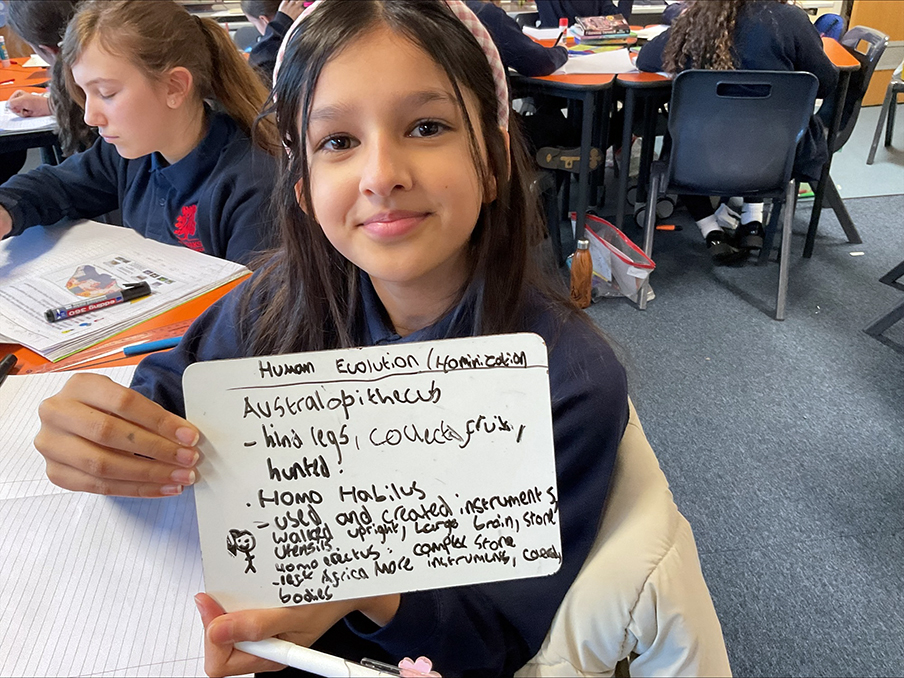 Human Evolution (Hominization
Australopithecus
- hind legs, collect fruits,
hunted.
. Homo Habilus
- used and created instruments,
walked upright, large brain, stone
utensils.
Homo erectus: complex stone
- left Africa More instruments, covered
bodies
edding 360